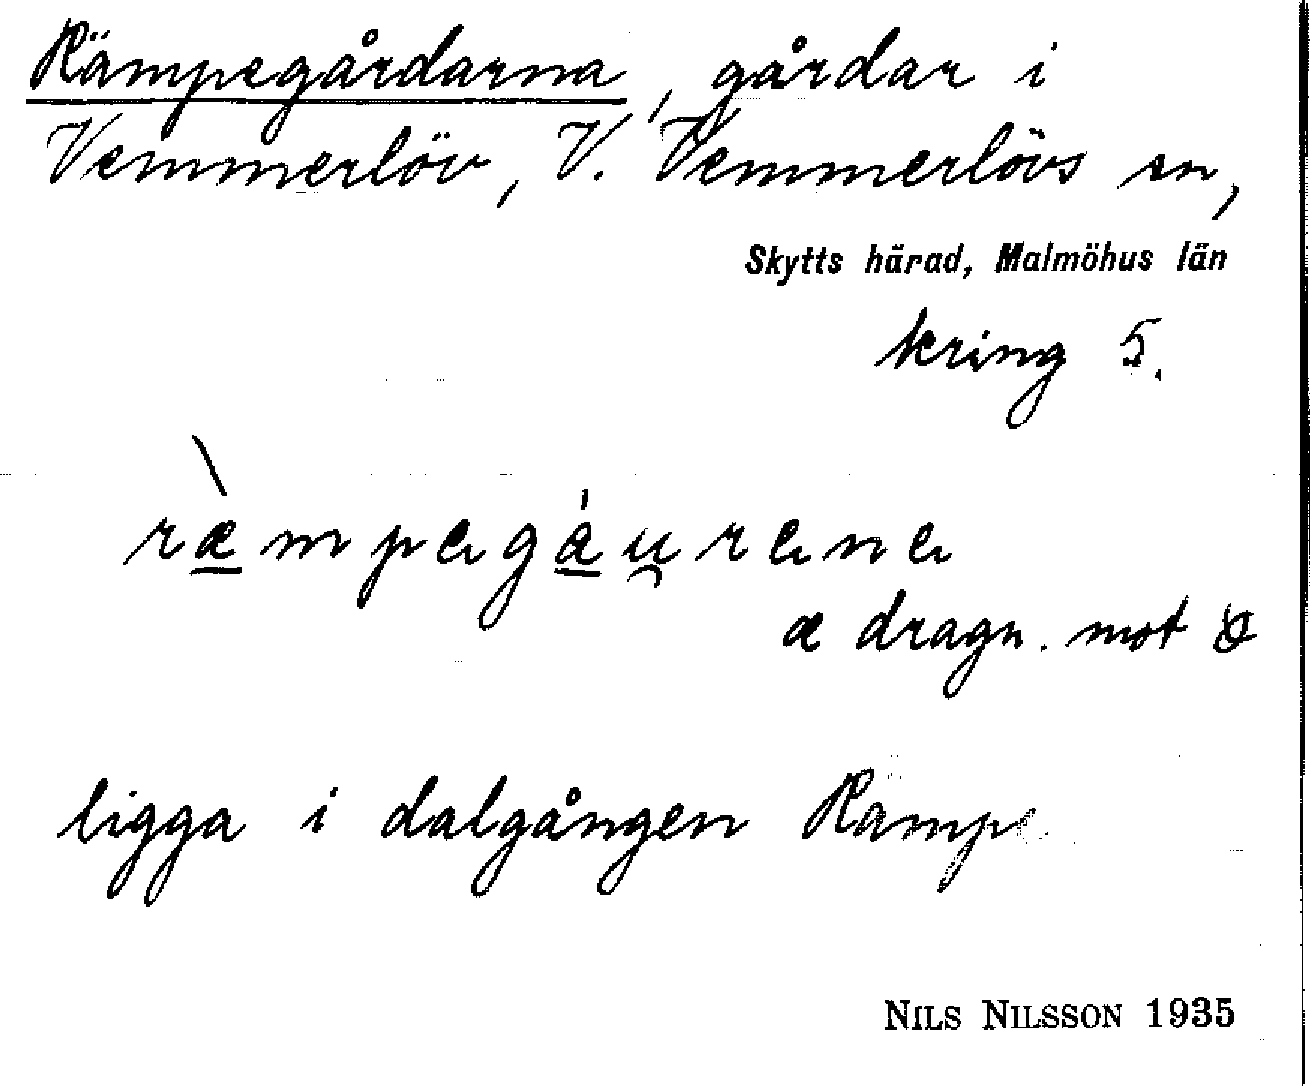 Rämpegårdarna, gårdar i
Vemmerlöv, V. Vemmerlövs sn,
Skytts härad, Malmöhus län
kring 5.
ræ̀mpegáu̯rene
æ dragn. mot
ligga i dalgången Rämpe
NILS NILSSON 1935